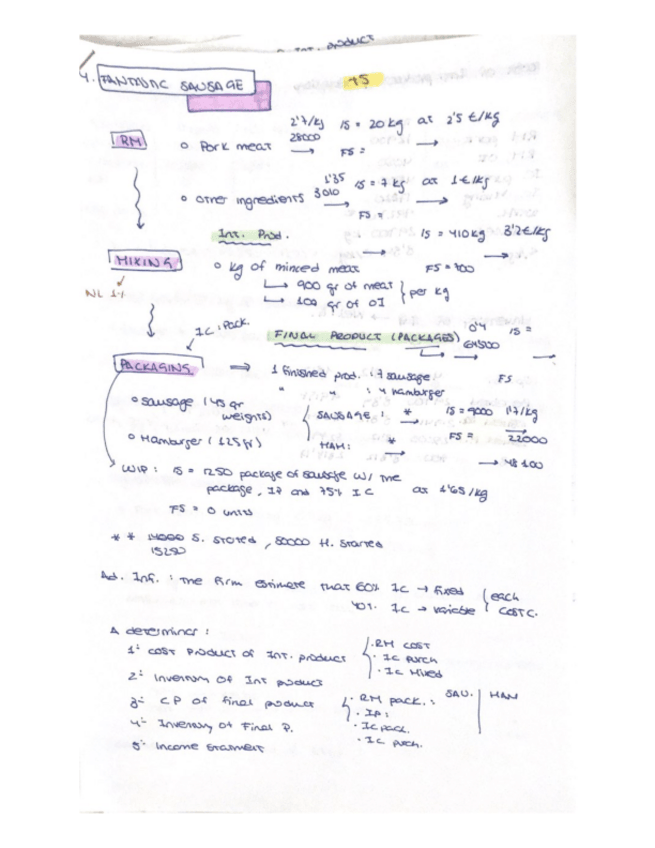 INT. PRODUCT
4. FANTASTIC SAUSAGE
15
2'7/kg IS = 20 kg at 2'5 €/kg
RM
o Pork meat 28000 → FS = →
1'35 IS = 7 kg at 1 €/kg
o other ingredients 3010 → FS = →
Int. Prod. IS = 410 kg 3'2€/kg
MIXING o kg of minced meat → FS = 700 →
NL 1%
↳ 900 gr of meat } per kg
↳ 100 gr of OI
IC: Pack.
FINAL PRODUCT (PACKAGES) 0'4 IS =
PACKAGING ⇒ 1 finished prod. : 7 sausage FS
" " : 4 hamburger
o sausage (45 gr weights) SAUSAGE : * IS = 9000 1'7/kg
o Hamburger (125 gr) HAM : * FS = 22000
→ 48100
WIP : IS = 1250 package of sausage w/ the
package, IP and 75% IC at 1'65/kg
FS = 0 units
* * S. started, 80000 H. started
15250
Ad. Inf. : The firm estimate that 60% IC → fixed { each
40% IC → variable cost C.
A determinar :
1º cost product of Int. product { · RM cost
· IC purch
· IC Mixed
2º Inventory of Int product
3º CP of final product { · RM pack. : SAU. | HAM
· IP :
4º Inventory of Final P. · IC pack.
· IC purch.
5º Income statement